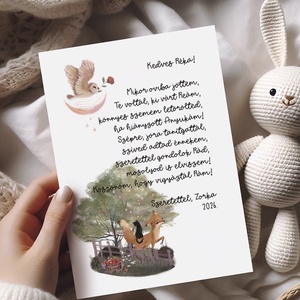 Kedves Réka!
Mikor oviba jöttem,
Te voltál, ki várt Reám,
könnyes szemem letörölted,
ha hiányzott Anyukám!
Szépre, jóra tanítgattál,
szíved adtad énnekem,
szeretettel gondolok Rád,
mosolyod is elviszem!
Köszönöm, hogy vigyáztál Rám!
Szeretettel, Zorka
2026.